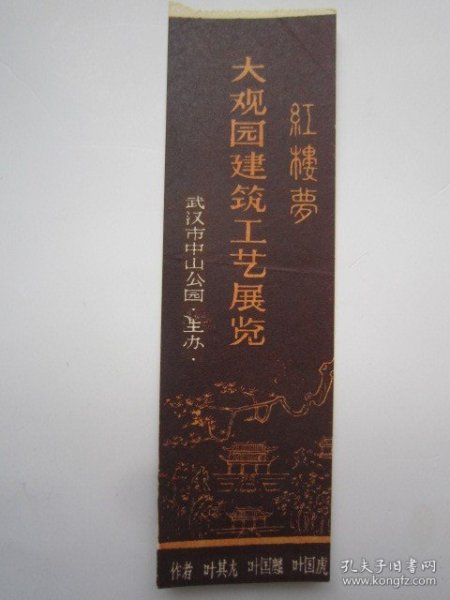 紅樓夢
大观园建筑工艺展览
武汉市中山公园·主办·
作者 叶其龙 叶国麟 叶国虎
孔夫子旧书网
www.kongfz.com